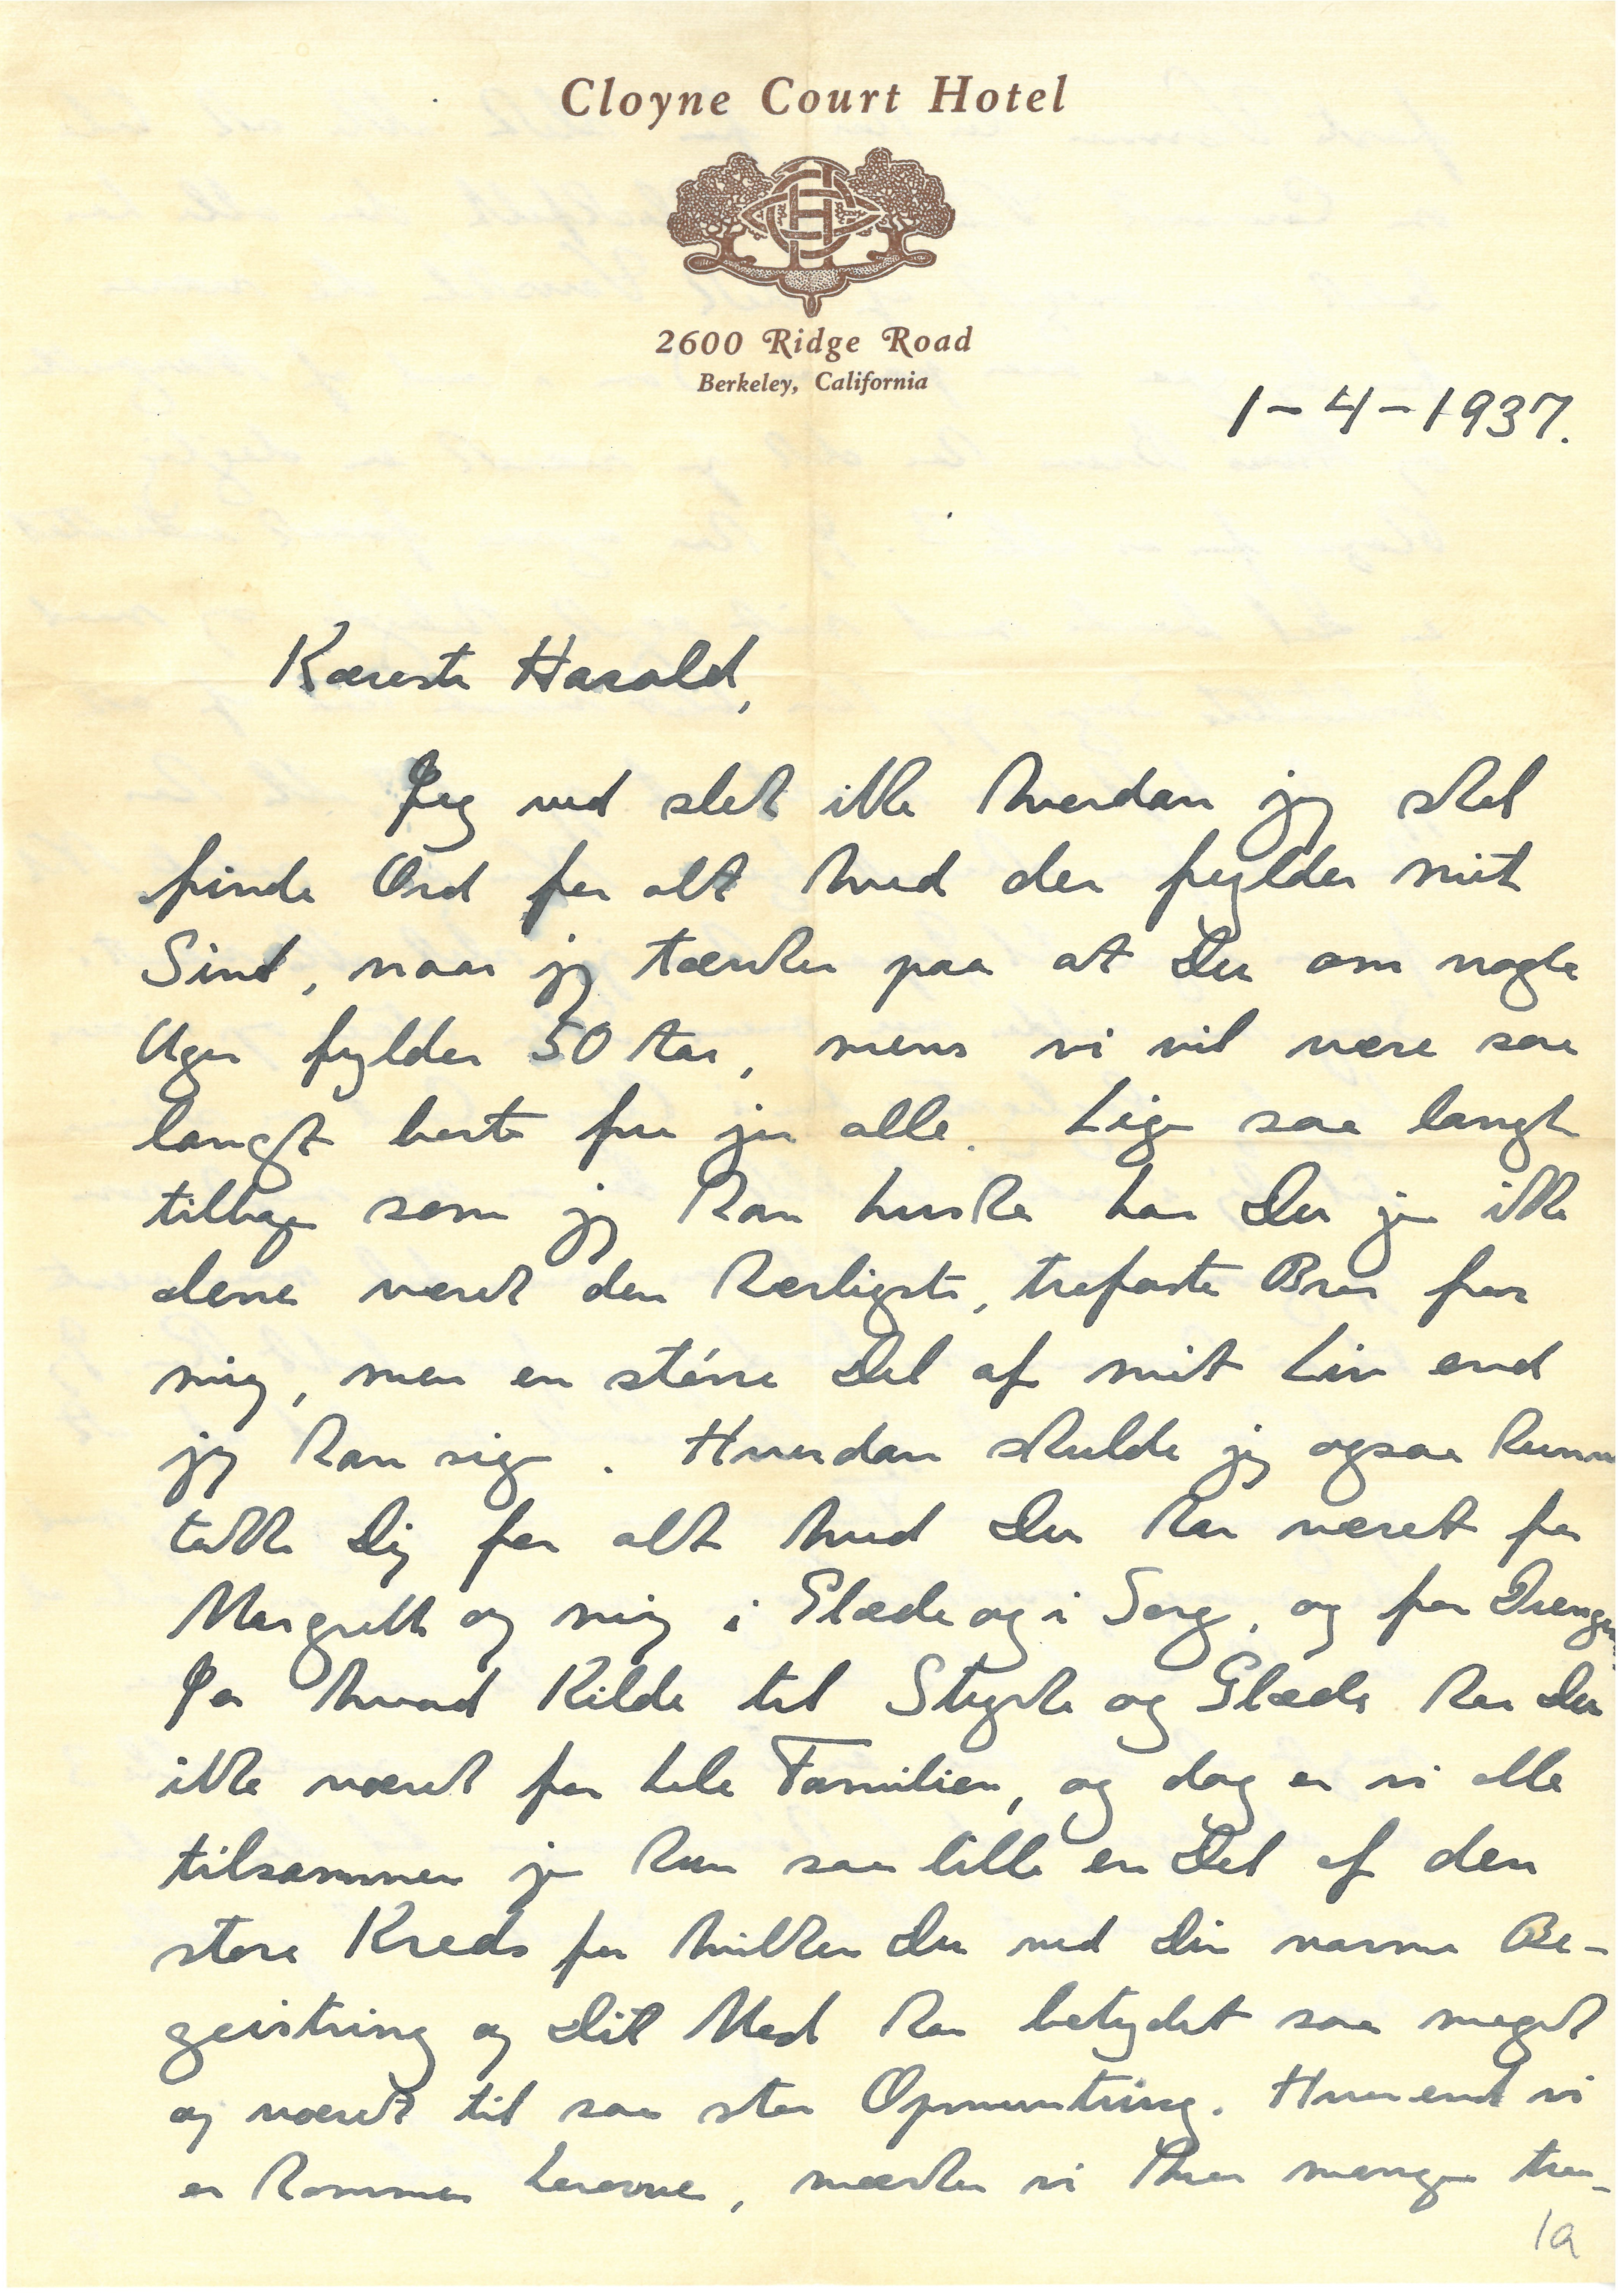 Cloyne Court Hotel
2600 Ridge Road
Berkeley, California
1-4-1937.
Kæreste Harald,
Jeg ved slet ikke hvordan jeg skal
finde Ord for alt hvad der fylder mit
Sind, naar jeg tænker paa at Du om nogle
Uger fylder 50 Aar, mens vi vil være saa
langt borte fra jer alle. Lige saa langt
tilbage som jeg kan huske har Du jo ikke
alene været den kærligste, trofaste Bror for
mig, men en större Del af mit Liv end
jeg kan sige. Hvordan skulde jeg ogsaa kunne
takke Dig for alt hvad Du har været for
Margrethe og mig i Glæde og i Sorg, og for Drengene.
Ja hvad Kilde til Styrke og Glæde har Du
ikke været for hele Familien, og dog er vi alle
tilsammen jo kun saa lille en Del af den
store Kreds for hvilken Du ved Din varme Be-
geistring og Dit Mod har betydet saa meget
og været til saa stor Opmuntring. Hvor end vi
er kommen herovre, mærker vi hvor mange tro-
1a